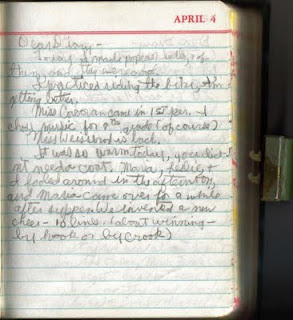 APRIL 4
Dear Diary -
Today I made popcorn balls, 7 of
them, and they were good.
I practiced riding the bike, I'm
getting better.
Miss Corcoran came in 1st per. I
chose music for 8th grade (of course)
Ness Weissend is back.
It was so warm today, you did-
n't need a coat. Maria, Leslie, &
I fooled around in the afternoon,
and Maria came over for a while
after supper. We invented a new
cheer - 10 lines - (about winning -
by hook or by crook)